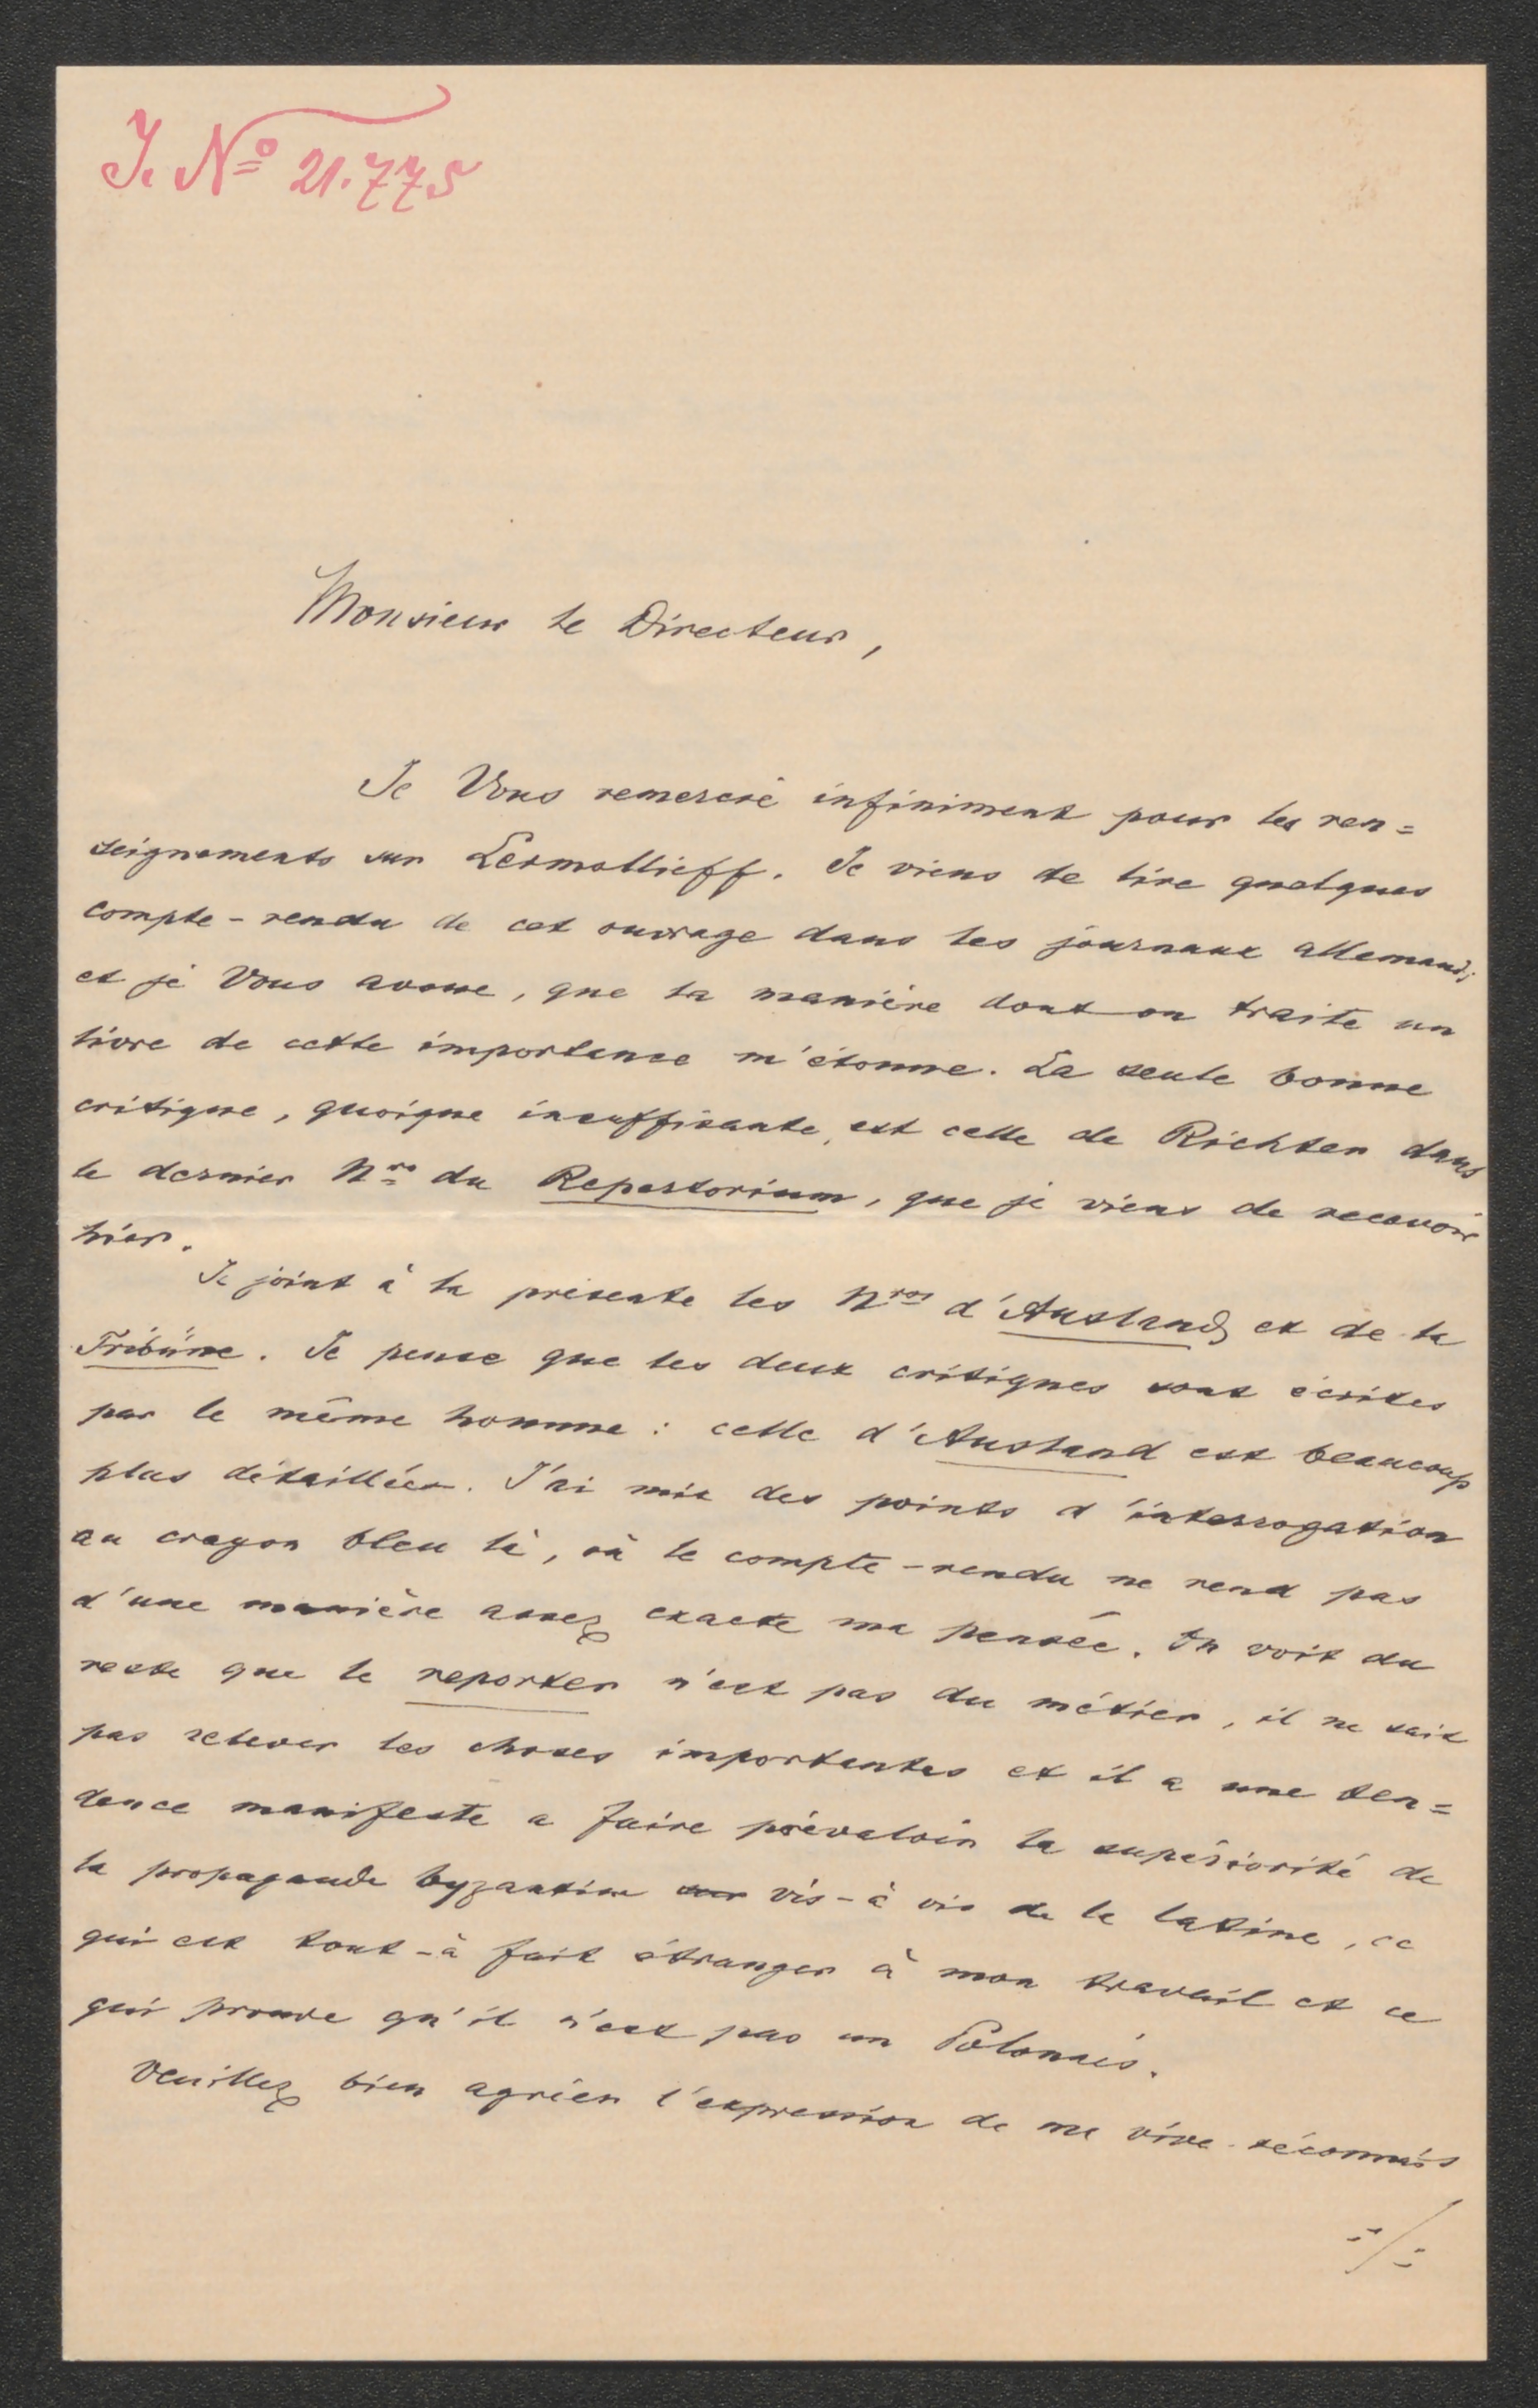 J. Nº 21.775
Monsieur le Directeur,
Je Vous remercie infiniment pour les ren=
seignements sur Lermollieff. Je viens de lire quelques
compte-rendu de cet ouvrage dans les journaux allemands
et je Vous avoue, que la manière dont on traite un
livre de cette importance m'étonne. La seule bonne
critique, quoique insuffisante, est celle de Richter dans
le dernier Nro du Repertorium, que je viens de recevoir
hier.
Je joint à la présente les Nros d'Ausland et de la
Tribüne. Je pense que les deux critiques sont écrites
par le même homme : celle d'Ausland est beaucoup
plus détaillée. J'ai mis des points d'interrogation
au crayon bleu là, où le compte-rendu ne rend pas
d'une manière assez exacte ma pensée. On voit du
reste que le reporter n'est pas du métier, il ne sait
pas relever les choses importantes et il a une ten=
dence manifeste a faire prévaloir la supériorité de
la propagande byzantine sur vis-à vis de la latine, ce
qui est tout-à fait étranger à mon travail et ce
qui prouve qu'il n'est pas un Polonais.
Veuillez bien agréer l'expression de ma vive reconnais